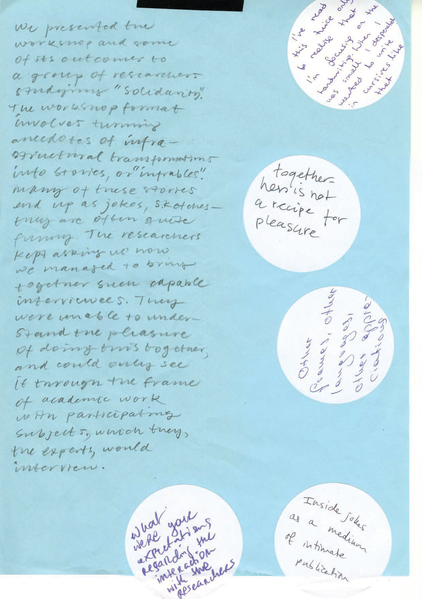 We presented the
workshop and some
of its outcomes to
a group of researchers
studying "solidarity".
The workshop format
involves turning
anecdotes of infra-
structural transformations
into stories, or "infrables".
Many of these stories
end up as jokes, sketches—
they are often quite
funny. The researchers
kept asking us how
we managed to bring
together such capable
interviewees. They
were unable to under-
stand the pleasure
of doing this together,
and could only see
it through the frame
of academic work
with participating
subjects, which they,
the experts, would
interview.
I've read
this twice only
to realise that
I'm focusing on the
handwriting. When I
was small I desperately
wanted to write
in cursives like
that
together-
ness is not
a recipe for
pleasure
Other
frames, other
languages,
other appre-
ciations
What
were your
expectations
regarding the
interaction
with the
researchers
Inside jokes
as a medium
of intimate
publication